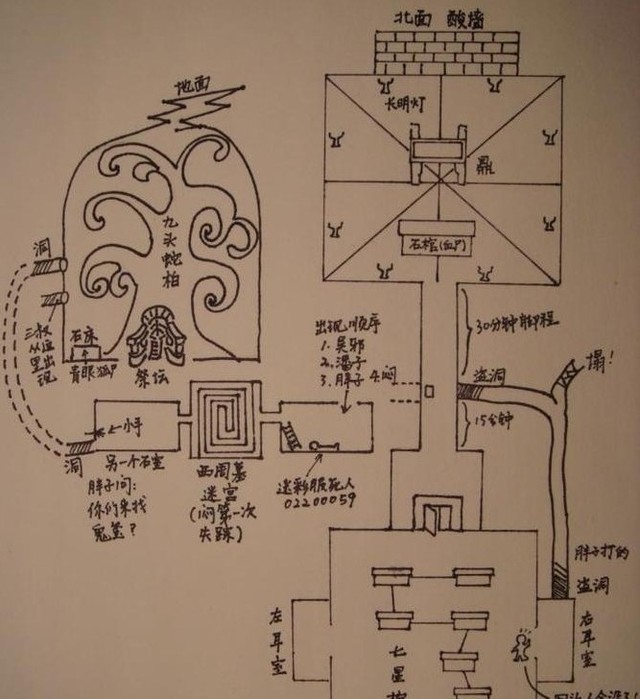 北面 酸墙
地面
长明灯
鼎
九头蛇柏
洞
石棺(血尸)
三叔
从这
里出
现
石床
青眼狐尸
祭坛
出现顺序
1. 吴邪
2. 潘子
3. 胖子 4. 闷
30分钟脚程
盗洞
塌!
15分钟
小手
洞
另一个石室
胖子问:
你们来找
鬼玺?
西周墓
迷宫
(闷第一次
失踪)
迷彩服死人
02200059
胖子打的
盗洞
左耳室
右耳室
七星